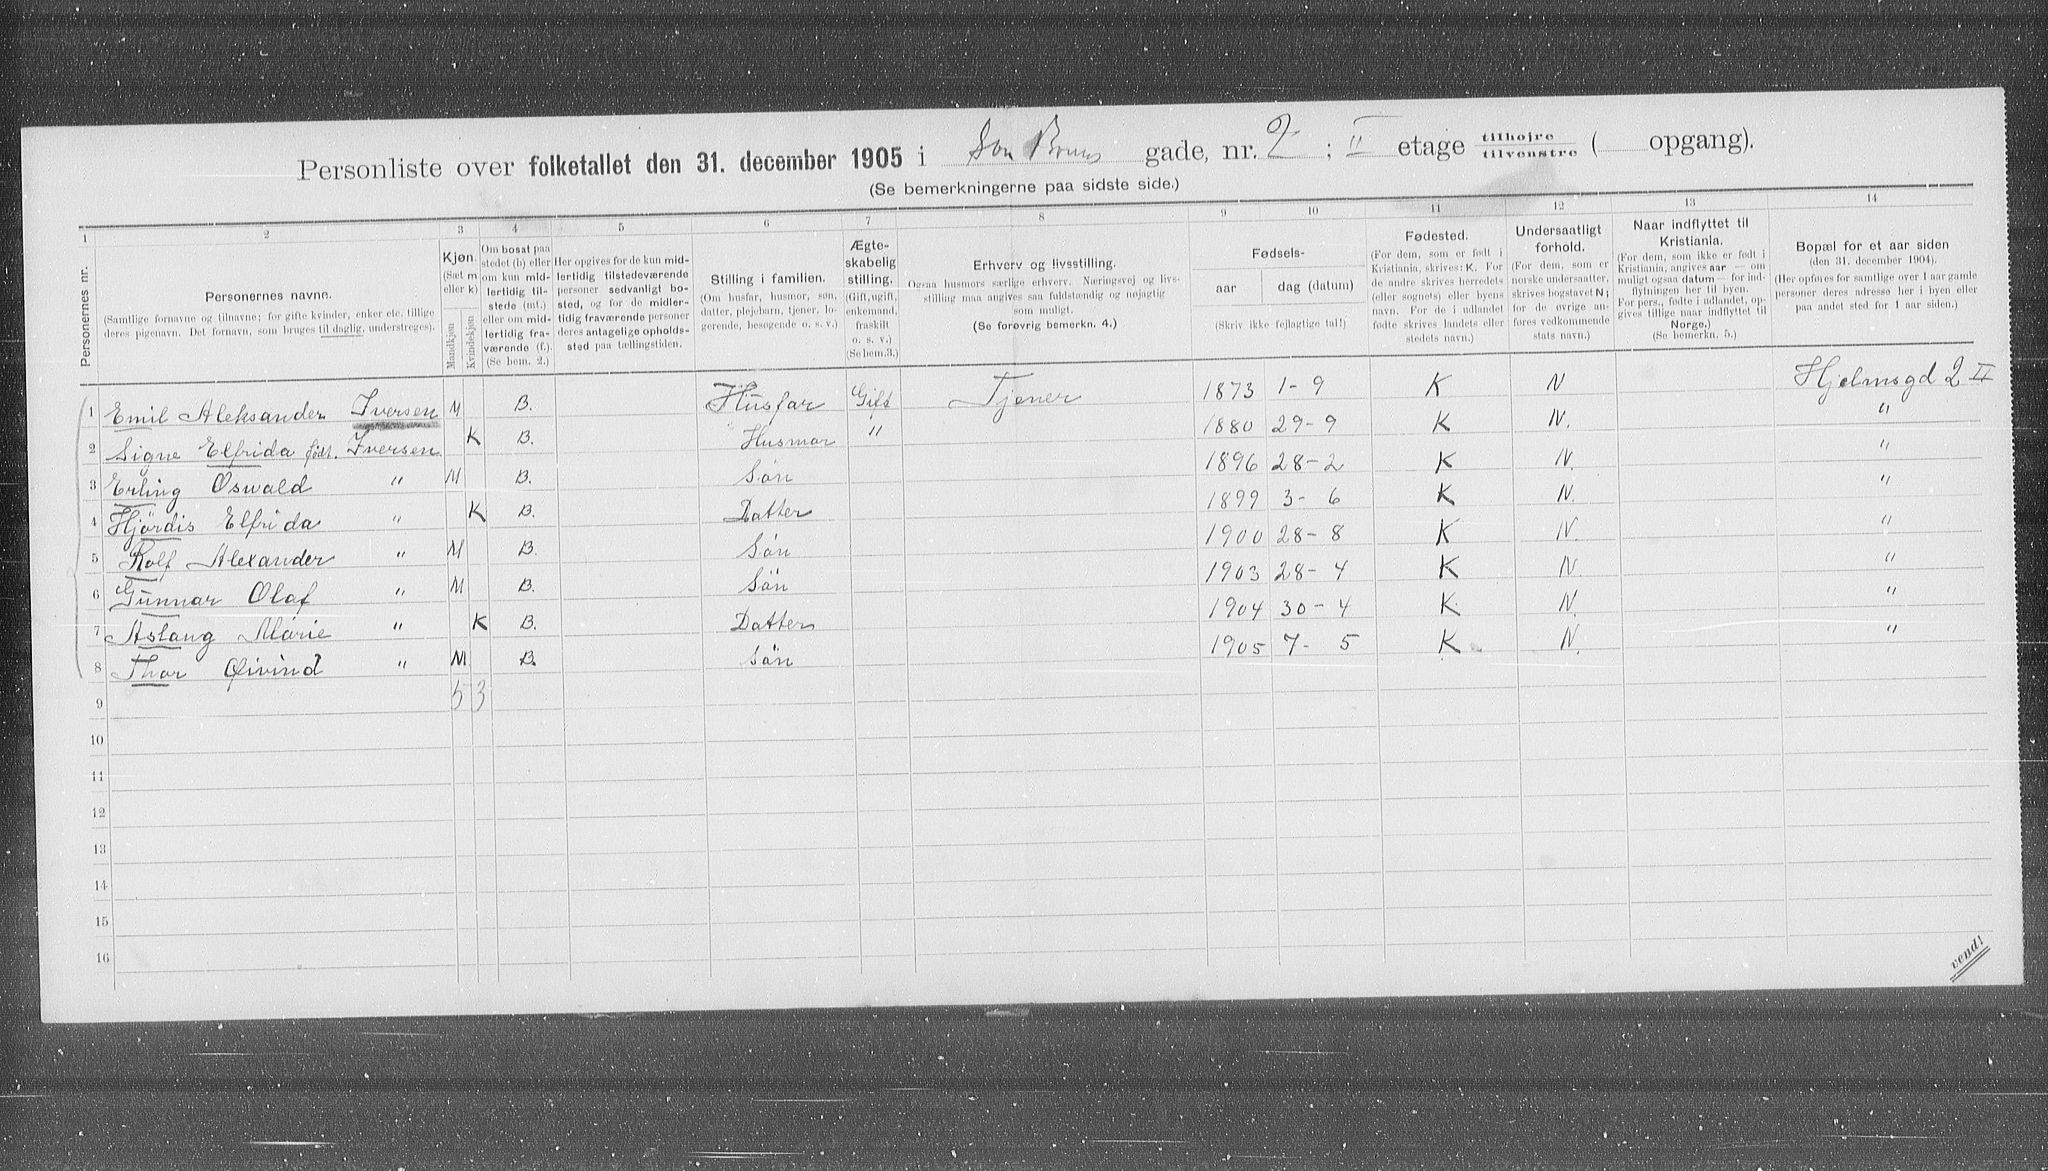 Personliste over folketallet den 31. december 1905 i Von Bruns gade, nr. 2 ; II etage tilhøjre / tilvenstre ( opgang).
(Se bemerkningerne paa sidste side.)
1 2 3 4 5 6 7 8 9 10 11 12 13 14
Personernes nr.
Personernes navne.
(Samtlige fornavne og tilnavne; for gifte kvinder, enker etc. tillige deres pigenavn. Det fornavn, som bruges til daglig, understreges).
Kjøn.
(Sæt m eller k)
Mandkjøn
Kvindekjøn
Om bosat paa stedet (b) eller om kun midlertidig tilstede (mt.) eller om midlertidig fraværende (f.). (Se bem. 2.)
Her opgives for de kun midlertidig tilstedeværende personer sedvanligt bosted, og for de midlertidig fraværende personer deres antagelige opholdssted paa tællingstiden.
Stilling i familien.
(Om husfar, husmor, søn, datter, plejebarn, tjener, logerende, besøgende o. s. v.)
Ægteskabelig stilling.
(Gift, ugift, enkemand, fraskilt o. s. v.) (Se bem. 3.)
Erhverv og livsstilling.
Ogsaa husmors særlige erhverv. Næringsvej og livsstilling maa angives saa fuldstændig og nøjagtig som muligt.
(Se forøvrig bemerkn. 4.)
Fødsels-
aar dag (datum)
(Skriv ikke fejlagtige tal!)
Fødested.
(For dem, som er født i Kristiania, skrives: K. For de andre skrives herredets (eller sognets) eller byens navn. For de i udlandet fødte skrives landets eller stedets navn.)
Undersaatligt forhold.
(For dem, som er norske undersaatter, skrives bogstavet N; for de øvrige anføres vedkommende stats navn.)
Naar indflyttet til Kristiania.
(For dem, som ikke er født i Kristiania, angives aar — om muligt ogsaa datum — for indflytningen her til byen. For pers., fødte i udlandet, opgives tillige naar indflyttet til Norge.)
(Se bemerkn. 5.)
Bopæl for et aar siden
(den 31. december 1904).
(Her opføres for samtlige over 1 aar gamle personer deres adresse her i byen eller paa andet sted for 1 aar siden.)
1 Emil Aleksander Iversen M B. Husfar Gift Tjener 1873 1-9 K N Hjelmsgd 2 II
2 Signe Elfrida født. Iversen K B. Husmor " 1880 29-9 K N. "
3 Erling Oswald " M B. Søn 1896 28-2 K N. "
4 Hjördis Elfrida " K B. Datter 1899 3-6 K N. "
5 Rolf Alexander " M B. Sön 1900 28-8 K N. "
6 Gunnar Olaf " M B. Sön 1903 28-4 K N. "
7 Aslaug Marie " K B. Datter 1904 30-4 K. N. "
8 Thor Øivind " M B. Søn 1905 7-5 K N. "
9 5 3
10
11
12
13
14
15
16
vend!